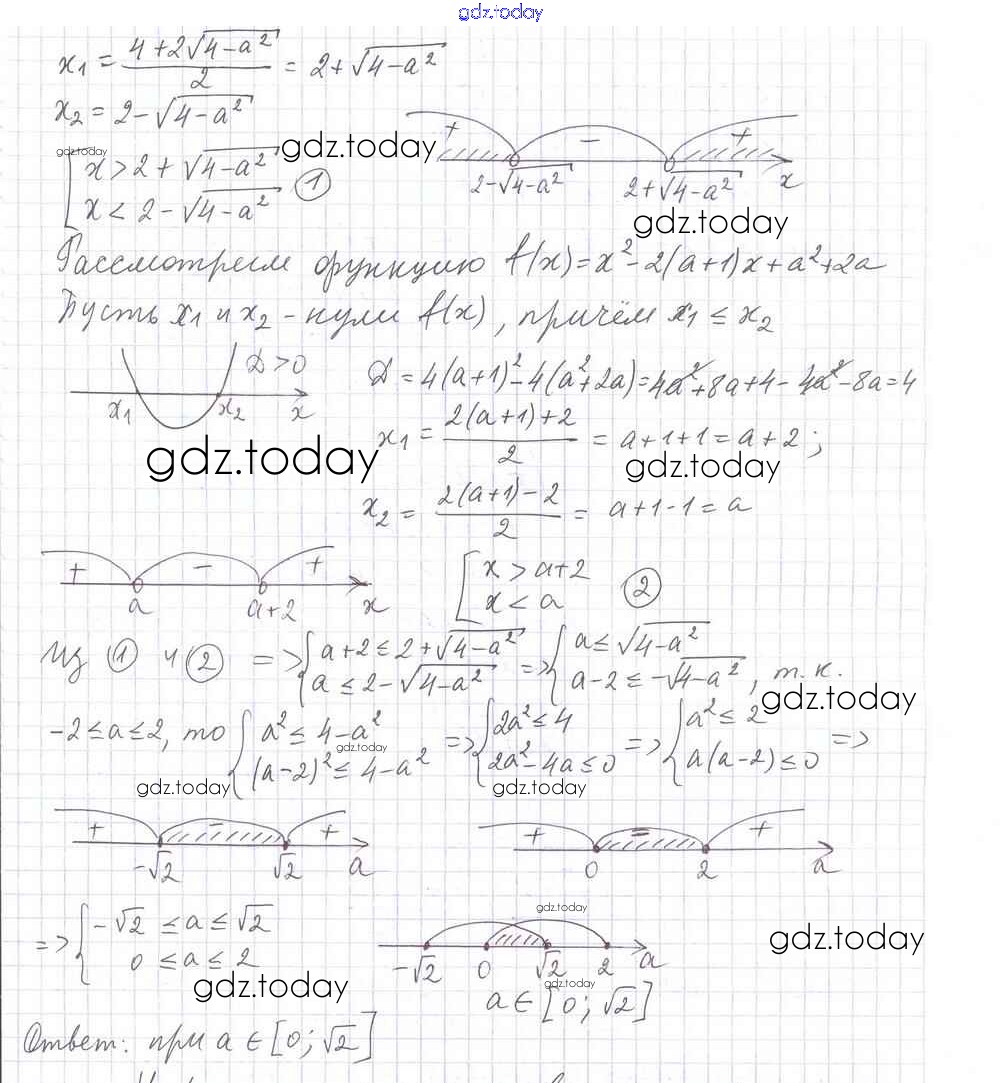 gdz.today
x₁ = (4+2√(4-a²))/2 = 2+√(4-a²)
x₂ = 2-√(4-a²)
gdz.today
gdz.today
[ x > 2+√(4-a²)
x < 2-√(4-a²) ①
+ - +
2-√(4-a²) 2+√(4-a²) x
gdz.today
Рассмотрим функцию f(x)=x²-2(a+1)x+a²+2a
Пусть x₁ и x₂ - нули f(x), причём x₁ ≤ x₂
D>0
x₁ x₂ x
D = 4(a+1)²-4(a²+2a)=4a²+8a+4-4a²-8a=4
x₁ = (2(a+1)+2)/2 = a+1+1=a+2;
gdz.today
gdz.today
x₂ = (2(a+1)-2)/2 = a+1-1=a
+ - +
a a+2 x
[ x > a+2
x < a ②
Из ① и ② => { a+2 ≤ 2+√(4-a²) => { a ≤ √(4-a²)
a ≤ 2-√(4-a²) a-2 ≤ -√(4-a²), т.к.
gdz.today
-2≤a≤2, то { a² ≤ 4-a² => { 2a² ≤ 4 => { a² ≤ 2 =>
gdz.today
(a-2)² ≤ 4-a² 2a²-4a ≤ 0 a(a-2) ≤ 0
gdz.today
gdz.today
+ - +
-√2 √2 a
+ - +
0 2 a
=> { -√2 ≤ a ≤ √2
0 ≤ a ≤ 2
gdz.today
gdz.today
-√2 0 √2 2 a
gdz.today
gdz.today
a ∈ [0; √2]
Ответ: при a ∈ [0; √2]